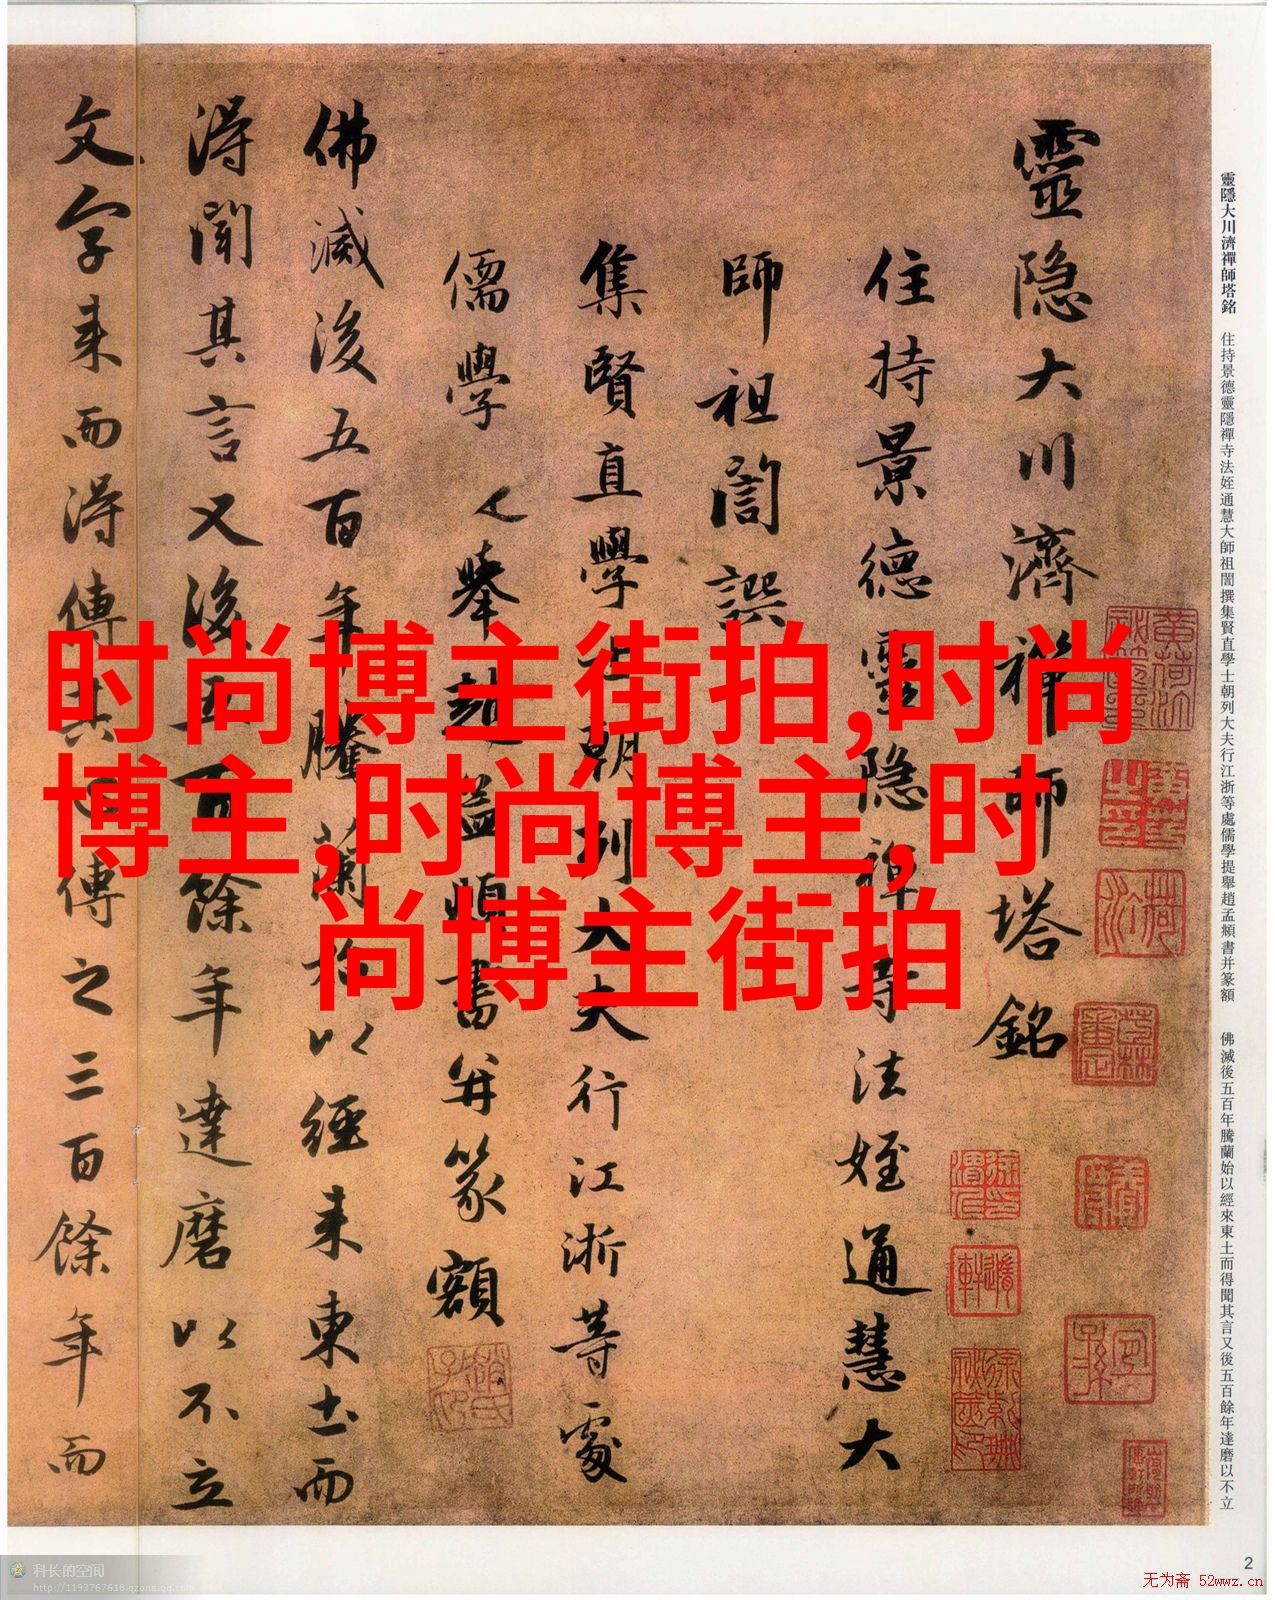 靈隐大川濟禅師塔銘
住持景德靈隐禅寺法姪通慧大
師祖誾譔
集賢直學士朝列大夫行江浙等處
儒學提舉趙孟頫書并篆額
佛滅後五百年騰蘭始以經来東土而
得聞其言又後五百餘年達磨以不立
文字来而得傳其心傳之三百餘年而
靈隱大川濟禪師塔銘 住持景德靈隱禪寺法姪通慧大師祖誾撰集賢直學士朝列大夫行江浙等處儒學提舉趙孟頫書并篆額 佛滅後五百年騰蘭始以經來東土而得聞其言又後五百餘年達磨以不立
时尚博主街拍,时尚
博主,时尚博主,时
尚博主街拍
2
科长的空间
http://1193767618.qzone.qq.com
无为斋 52wwz.cn